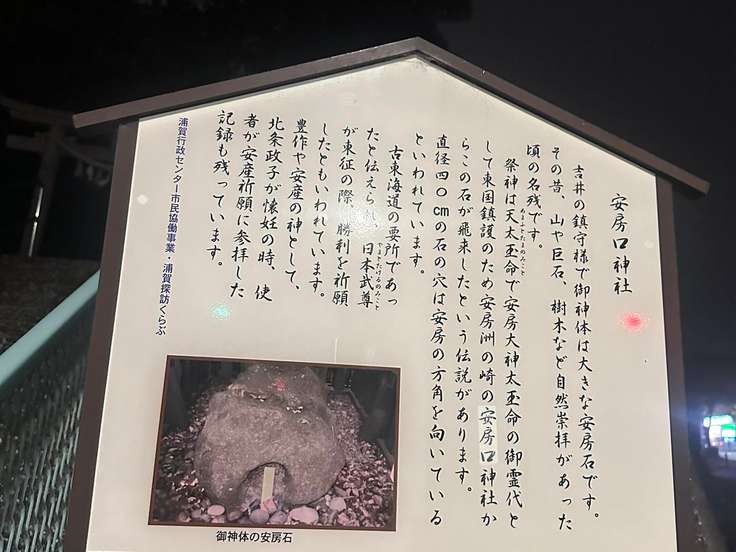 安房口神社
吉井の鎮守様で御神体は大きな安房石です。
その昔、山や巨石、樹木など自然崇拝があった
頃の名残です。
祭神は天太玉命で安房大神太玉命の御霊代と
して東国鎮護のため安房洲の崎の安房口神社か
らこの石が飛来したという伝説があります。
直径四〇cmの石の穴は安房の方角を向いている
といわれています。
古東海道の要所であっ
たと伝えら　、日本武尊
が東征の際、勝利を祈願
したともいわれています。
豊作や安産の神として、
北条政子が懐妊の時、使
者が安産祈願に参拝した
記録も残っています。
浦賀行政センター市民協働事業・浦賀探訪くらぶ
御神体の安房石